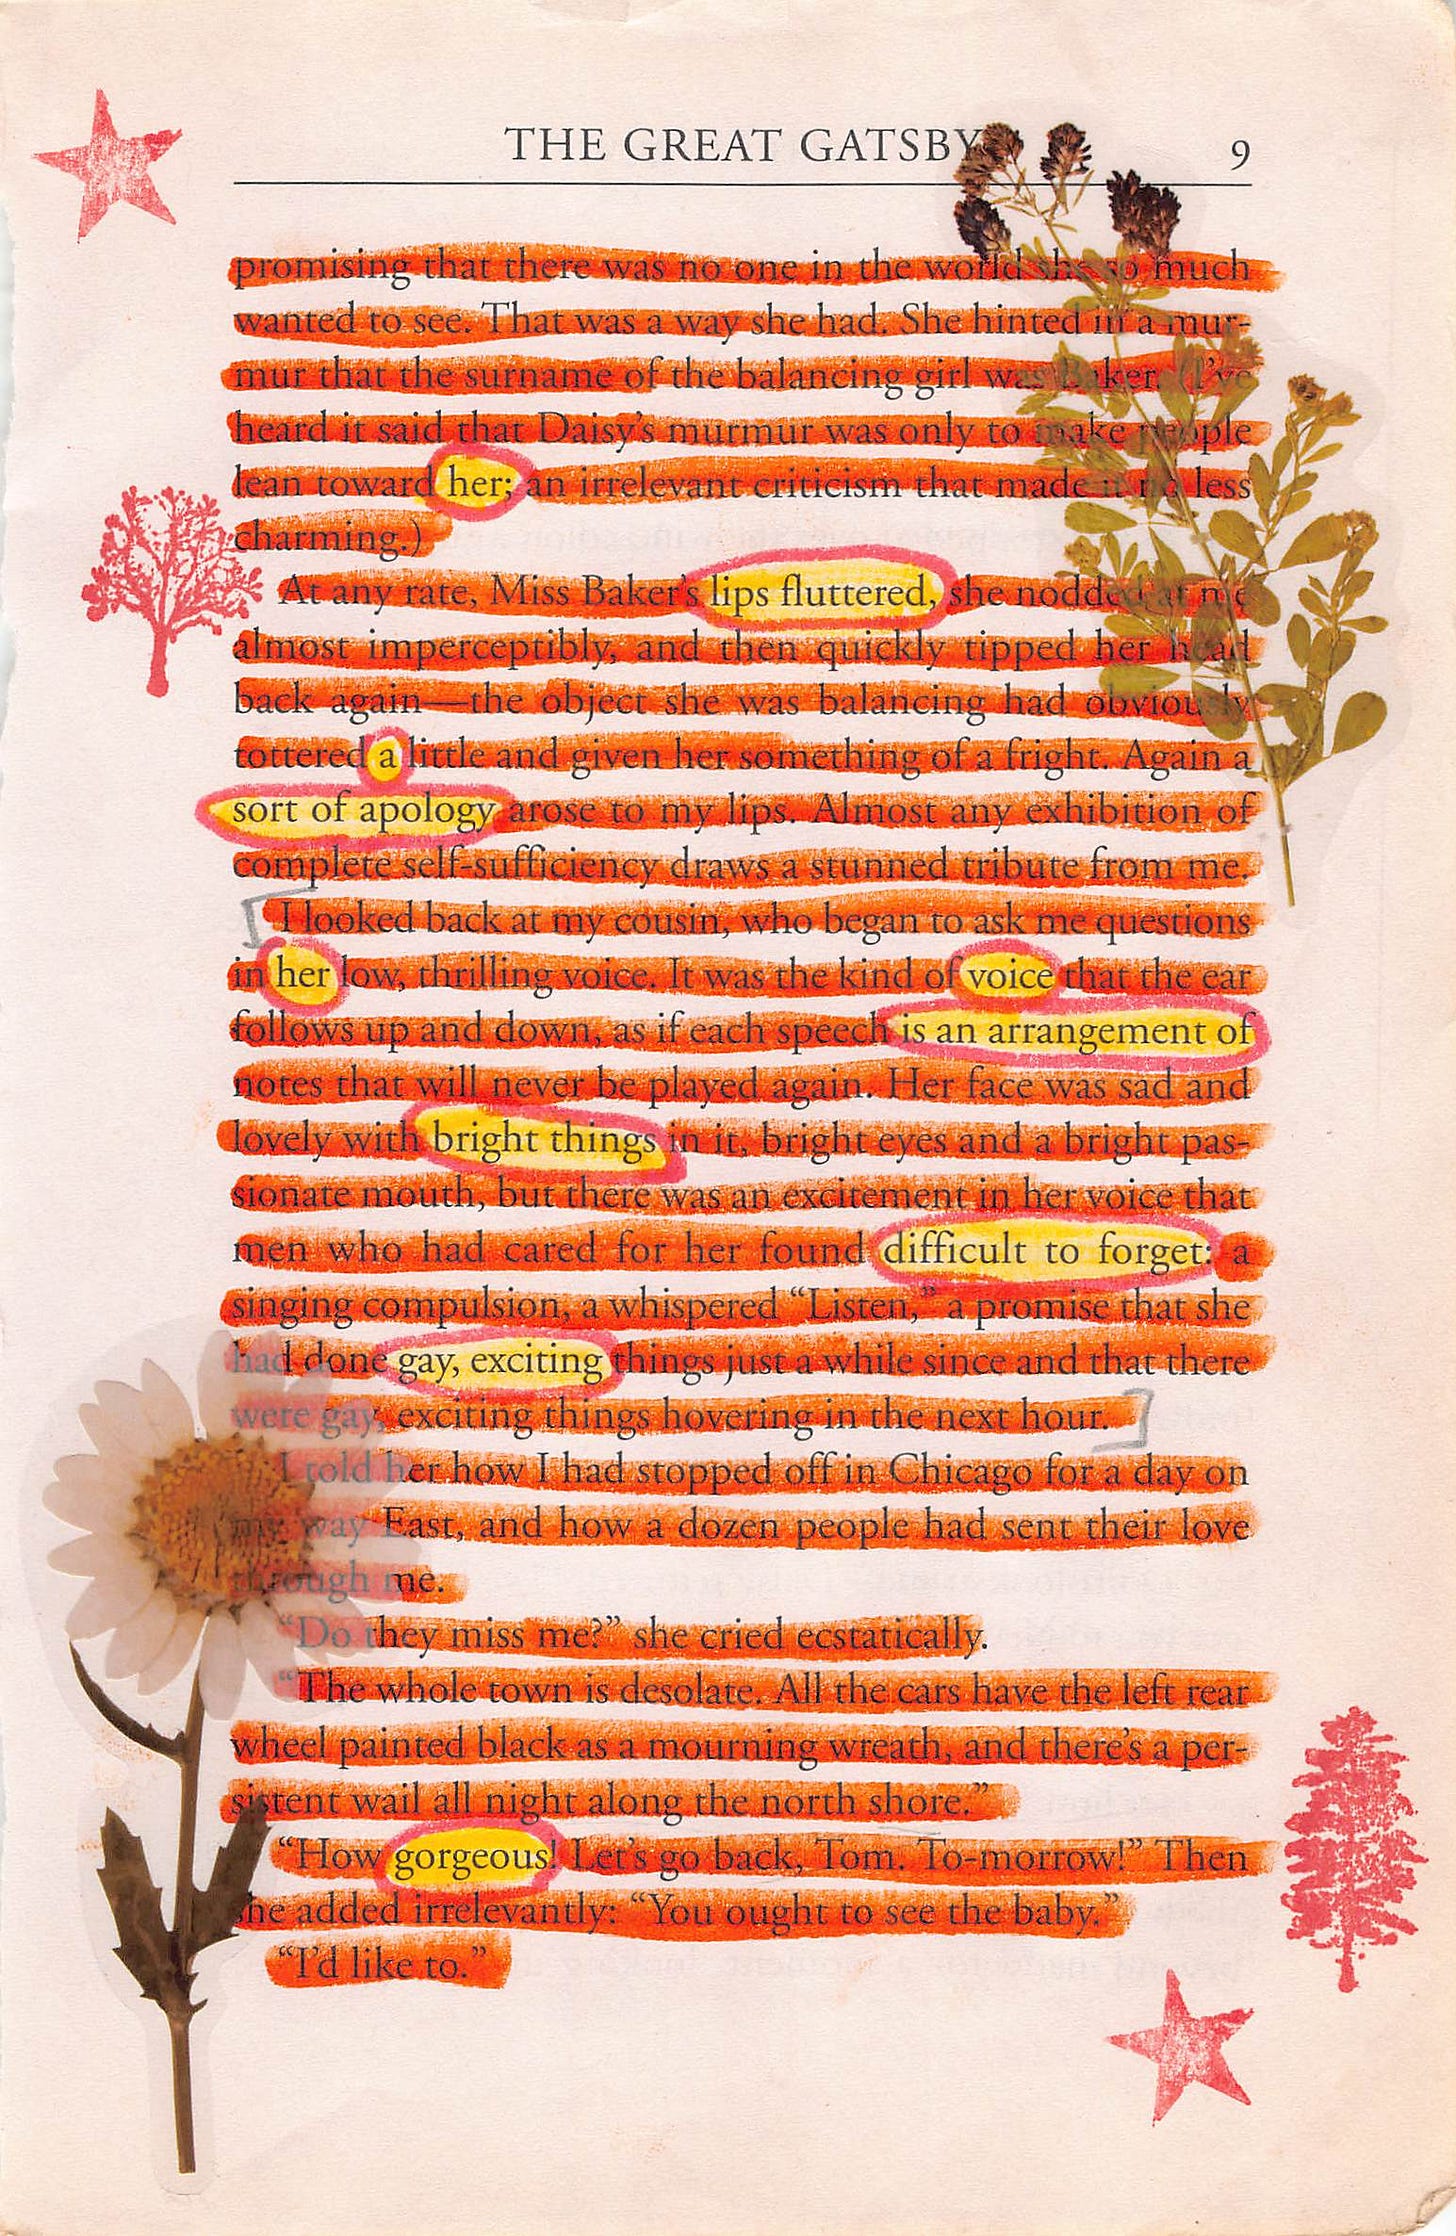 THE GREAT GATSBY 9
promising that there was no one in the world she so much
wanted to see. That was a way she had. She hinted in a mur-
mur that the surname of the balancing girl was Baker. (I've
heard it said that Daisy's murmur was only to make people
lean toward her; an irrelevant criticism that made it no less
charming.)
At any rate, Miss Baker's lips fluttered, she nodded at me
almost imperceptibly, and then quickly tipped her head
back again—the object she was balancing had obviously
tottered a little and given her something of a fright. Again a
sort of apology arose to my lips. Almost any exhibition of
complete self-sufficiency draws a stunned tribute from me.
I looked back at my cousin, who began to ask me questions
in her low, thrilling voice. It was the kind of voice that the ear
follows up and down, as if each speech is an arrangement of
notes that will never be played again. Her face was sad and
lovely with bright things in it, bright eyes and a bright pas-
sionate mouth, but there was an excitement in her voice that
men who had cared for her found difficult to forget: a
singing compulsion, a whispered “Listen,” a promise that she
had done gay, exciting things just a while since and that there
were gay, exciting things hovering in the next hour.
I told her how I had stopped off in Chicago for a day on
my way East, and how a dozen people had sent their love
through me.
“Do they miss me?” she cried ecstatically.
“The whole town is desolate. All the cars have the left rear
wheel painted black as a mourning wreath, and there's a per-
sistent wail all night along the north shore.”
“How gorgeous! Let's go back, Tom. To-morrow!” Then
she added irrelevantly: “You ought to see the baby.”
“I'd like to.”